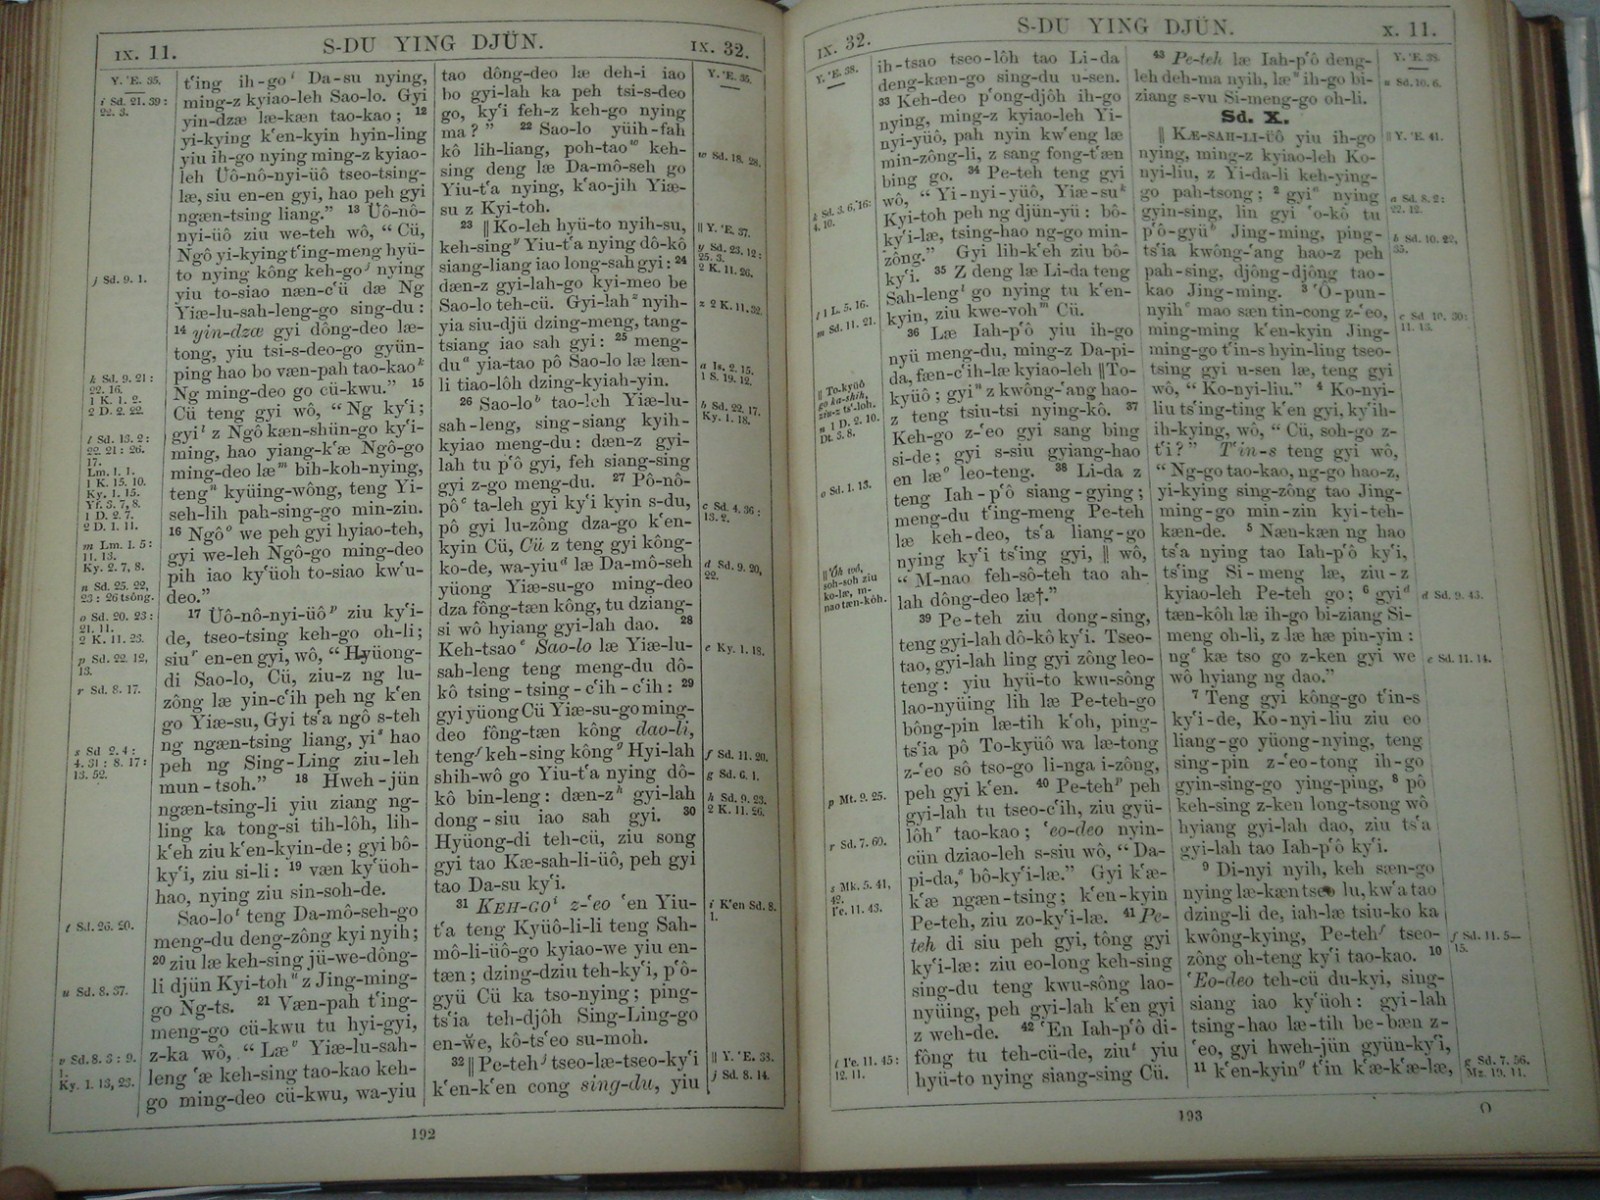 IX. 11.
S-DU YING DJÜN.
IX. 32.
Y. 'E. 35.
i Sd. 21. 39 :
22. 3.
j Sd. 9. 1.
k Sd. 9. 21 :
22. 16.
1 K. 1. 2.
2 D. 2. 22.
l Sd. 13. 2 :
22. 21 : 26.
17.
Lm. 1. 1.
1 K. 15. 10.
Ky. 1. 15.
Yf. 3. 7, 8.
1 D. 2. 7.
2 D. 1. 11.
m Lm. 1. 5 :
11. 13.
Ky. 2. 7, 8.
n Sd. 25. 22,
23 : 26 tsông.
o Sd. 20. 23 :
21. 11.
2 K. 11. 23.
p Sd. 22. 12,
13.
r Sd. 8. 17.
s Sd 2. 4 :
4. 31 : 8. 17 :
13. 52.
t Sd. 26. 20.
u Sd. 8. 37.
v Sd. 8. 3 : 9.
1.
Ky. 1. 13, 23.
t'ing ih-go i Da-su nying,
ming-z kyiao-leh Sao-lo. Gyi
yin-dzæ læ-kæn tao-kao ; 12
yi-kying k'en-kyin hyin-ling
yiu ih-go nying ming-z kyiao-
leh Üô-nô-nyi-üô tseo-tsing-
læ, siu en-en gyi, hao peh gyi
ngæn-tsing liang.” 13 Üô-nô-
nyi-üô ziu we-teh wô, “ Cü,
Ngô yi-kying t'ing-meng hyü-
to nying kông keh-go j nying
yiu to-siao næn-c'ü dæ Ng
Yiæ-lu-sah-leng-go sing-du :
14 yin-dzæ gyi dông-deo læ-
tong, yiu tsi-s-deo-go gyün-
ping hao bo væn-pah tao-kao k
Ng ming-deo go cü-kwu.” 15
Cü teng gyi wô, “ Ng ky'i ;
gyi l z Ngô kæn-shün-go ky'i-
ming, hao yiang-k'æ Ngô-go
ming-deo læ m bih-koh-nying,
teng n kyüing-wông, teng Yi-
seh-lih pah-sing-go min-zin.
16 Ngô o we peh gyi hyiao-teh,
gyi we-leh Ngô-go ming-deo
pih iao ky'üoh to-siao kw'u-
deo.”
17 Üô-nô-nyi-üô p ziu ky'i-
de, tseo-tsing keh-go oh-li ;
siu r en-en gyi, wô, “ Hyüong-
di Sao-lo, Cü, ziu-z ng lu-
zông læ yin-c'ih peh ng k'en
go Yiæ-su, Gyi ts'a ngô s-teh
ng ngæn-tsing liang, yi s hao
peh ng Sing-Ling ziu-leh
mun-tsoh.” 18 Hweh-jün
ngæn-tsing-li yiu ziang ng-
ling ka tong-si tih-lôh, lih-
k'eh ziu k'en-kyin-de ; gyi bô-
ky'i, ziu si-li : 19 væn ky'üoh-
hao, nying ziu sin-soh-de.
Sao-lo t teng Da-mô-seh-go
meng-du deng-zông kyi nyih ;
20 ziu læ keh-sing jü-we-dông-
li djün Kyi-toh u z Jing-ming-
go Ng-ts. 21 Væn-pah t'ing-
meng-go cü-kwu tu hyi-gyi,
z-ka wô, “ Læ v Yiæ-lu-sah-
leng 'æ keh-sing tao-kao keh-
go ming-deo cü-kwu, wa-yiu
tao dông-deo læ deh-i iao
bo gyi-lah ka peh tsi-s-deo
go, ky'i feh-z keh-go nying
ma ? ” 22 Sao-lo yüih-fah
kô lih-liang, poh-tao w keh-
sing deng læ Da-mô-seh go
Yiu-t'a nying, k'ao-jih Yiæ-
su z Kyi-toh.
23 || Ko-leh hyü-to nyih-su,
keh-sing y Yiu-t'a nying dô-kô
siang-liang iao long-sah gyi : 24
dæn-z gyi-lah-go kyi-meo be
Sao-lo teh-cü. Gyi-lah z nyih-
yia siu-djü dzing-meng, tang-
tsiang iao sah gyi : 25 meng-
du a yia-tao pô Sao-lo læ læn-
li tiao-lôh dzing-kyiah-yin.
26 Sao-lo b tao-leh Yiæ-lu-
sah-leng, sing-siang kyih-
kyiao meng-du : dæn-z gyi-
lah tu p'ô gyi, feh siang-sing
gyi z-go meng-du. 27 Pô-nô-
pô c ta-leh gyi ky'i kyin s-du,
pô gyi lu-zông dza-go k'en-
kyin Cü, Cü z teng gyi kông-
ko-de, wa-yiu d læ Da-mô-seh
yüong Yiæ-su-go ming-deo
dza fông-tæn kông, tu dziang-
si wô hyiang gyi-lah dao. 28
Keh-tsao e Sao-lo læ Yiæ-lu-
sah-leng teng meng-du dô-
kô tsing-tsing-c'ih-c'ih : 29
gyi yüong Cü Yiæ-su-go ming-
deo fông-tæn kông dao-li,
teng f keh-sing kông g Hyi-lah
shih-wô go Yiu-t'a nying dô-
kô bin-leng : dæn-z h gyi-lah
dong-siu iao sah gyi. 30
Hyüong-di teh-cü, ziu song
gyi tao Kæ-sah-li-üô, peh gyi
tao Da-su ky'i.
31 KEH-GO i z-'eo 'en Yiu-
t'a teng Kyüô-li-li teng Sah-
mô-li-üô-go kyiao-we yiu en-
tæn ; dzing-dziu teh-ky'i, p'ô-
gyü Cü ka tso-nying ; ping-
ts'ia teh-djôh Sing-Ling-go
en-we, kô-ts'eo su-moh.
32 || Pe-teh j tseo-læ-tseo-ky'i
k'en-k'en cong sing-du, yiu
Y. 'E. 35.
w Sd. 18. 28.
|| Y. 'E. 37.
y Sd. 23. 12 :
25. 3.
2 K. 11. 26.
z 2 K. 11. 32.
a Is. 2. 15.
1 S. 19. 12.
b Sd. 22. 17.
Ky. 1. 18.
c Sd. 4. 36 :
13. 2.
d Sd. 9. 20,
22.
e Ky. 1. 18.
f Sd. 11. 20.
g Sd. 6. 1.
h Sd. 9. 23.
2 K. 11. 26.
i K'en Sd. 8.
1.
|| Y. 'E. 38.
j Sd. 8. 14.
192
IX. 32.
S-DU YING DJÜN.
X. 11.
Y. 'E. 38.
k Sd. 3. 6, 16 :
4. 10.
l 1 L. 5. 16.
m Sd. 11. 21.
|| To-kyüô
go ka-shih,
ziu-z ts'-loh.
n 1 D. 2. 10.
Dt. 3. 8.
o Sd. 1. 13.
soh-soh ziu
ko-læ, m-
nao tæn-kôh.
p Mt. 9. 25.
r Sd. 7. 60.
s Mk. 5. 41,
42.
Ie. 11. 43.
t Ie. 11. 45 :
12. 11.
ih-tsao tseo-lôh tao Li-da
deng-kæn-go sing-du u-sen.
33 Keh-deo p'ong-djôh ih-go
nying, ming-z kyiao-leh Yi-
nyi-yüô, pah nyin kw'eng læ
min-zông-li, z sang fong-t'æn
bing go. 34 Pe-teh teng gyi
wô, “ Yi-nyi-yüô, Yiæ-su k
Kyi-toh peh ng djün-yü : bô-
ky'i-læ, tsing-hao ng-go min-
zông.” Gyi lih-k'eh ziu bô-
ky'i. 35 Z deng læ Li-da teng
Sah-leng l go nying tu k'en-
kyin, ziu kwe-voh m Cü.
36 Læ Iah-p'ô yiu ih-go
nyü meng-du, ming-z Da-pi-
da, fæn-c'ih-læ kyiao-leh ||To-
kyüô ; gyi n z kwông-'ang hao-
z teng tsiu-tsi nying-kô. 37
Keh-go z-'eo gyi sang bing
si-de ; gyi s-siu gyiang-hao
en læ o leo-teng. 38 Li-da z
teng Iah-p'ô siang-gying ;
meng-du t'ing-meng Pe-teh
læ keh-deo, ts'a liang-go
nying ky'i ts'ing gyi, || wô,
“ M-nao feh-sô-teh tao ah-
lah dông-deo læ†.”
39 Pe-teh ziu dong-sing,
teng gyi-lah dô-kô ky'i. Tseo-
tao, gyi-lah ling gyi zông leo-
teng : yiu hyü-to kwu-sông
lao-nyüing lih læ Pe-teh-go
bông-pin læ-tih k'oh, ping-
ts'ia pô To-kyüô wa læ-tong
z-'eo sô tso-go li-nga i-zông,
peh gyi k'en. 40 Pe-teh p peh
gyi-lah tu tseo-c'ih, ziu gyü-
lôh r tao-kao ; 'eo-deo nyin-
cün dziao-leh s-siu wô, “ Da-
pi-da, s bô-ky'i-læ.” Gyi k'æ-
k'æ ngæn-tsing ; k'en-kyin
Pe-teh, ziu zo-ky'i-læ. 41 Pe-
teh di siu peh gyi, tông gyi
ky'i-læ : ziu eo-long keh-sing
sing-du teng kwu-sông lao-
nyüing, peh gyi-lah k'en gyi
z weh-de. 42 'En Iah-p'ô di-
fông tu teh-cü-de, ziu t yiu
hyü-to nying siang-sing Cü.
43 Pe-teh læ Iah-p'ô deng-
leh deh-ma nyih, læ u ih-go bi-
ziang s-vu Si-meng-go oh-li.
Sd. X.
|| KÆ-SAH-LI-ÜÔ yiu ih-go
nying, ming-z kyiao-leh Ko-
nyi-liu, z Yi-da-li keh-ying-
go pah-tsong ; 2 gyi a nying
gyin-sing, lin gyi 'o-kô tu
p'ô-gyü b Jing-ming, ping-
ts'ia kwông-'ang hao-z peh
pah-sing, djông-djông tao-
kao Jing-ming. 3 'Ô-pun-
nyih c mao sæn tin-cong z-'eo,
ming-ming k'en-kyin Jing-
ming-go t'in-s hyin-ling tseo-
tsing gyi u-sen læ, teng gyi
wô, “ Ko-nyi-liu.” 4 Ko-nyi-
liu ts'ing-ting k'en gyi, ky'ih-
ih-kying, wô, “ Cü, soh-go z-
t'i ? ” T'in-s teng gyi wô,
“ Ng-go tao-kao, ng-go hao-z,
yi-kying sing-zông tao Jing-
ming-go min-zin kyi-teh-
kæn-de. 5 Næn-kæn ng hao
ts'a nying tao Iah-p'ô ky'i,
ts'ing Si-meng læ, ziu-z
kyiao-leh Pe-teh go ; 6 gyi d
tæn-kôh læ ih-go bi-ziang Si-
meng oh-li, z læ hæ pin-yin :
ng e kæ tso go z-ken gyi we
wô hyiang ng dao.”
7 Teng gyi kông-go t'in-s
ky'i-de, Ko-nyi-liu ziu eo
liang-go yüong-nying, teng
sing-pin z-'eo-tong ih-go
gyin-sing-go ying-ping, 8 pô
keh-sing z-ken long-tsong wô
hyiang gyi-lah dao, ziu ts'a
gyi-lah tao Iah-p'ô ky'i.
9 Di-nyi nyih, keh sæn-go
nying læ-kæn tseo lu, kw'a tao
dzing-li de, iah-læ tsiu-ko ka
kwông-kying, Pe-teh f tseo-
zông oh-teng ky'i tao-kao. 10
'Eo-deo teh-cü du-kyi, sing-
siang iao ky'üoh : gyi-lah
tsing-hao læ-tih be-bæn z-
'eo, gyi hweh-jün gyün-ky'i,
11 k'en-kyin g t'in k'æ-k'æ-læ,
Y. 'E. 38.
u Sd. 10. 6.
|| Y. 'E. 41.
a Sd. 8. 2 :
22. 12.
b Sd. 10. 22,
35.
c Sd 10. 30 :
11. 13.
d Sd. 9. 43.
e Sd. 11. 14.
f Sd. 11. 5—
15.
g Sd. 7. 56.
Mz. 19. 11.
193
O